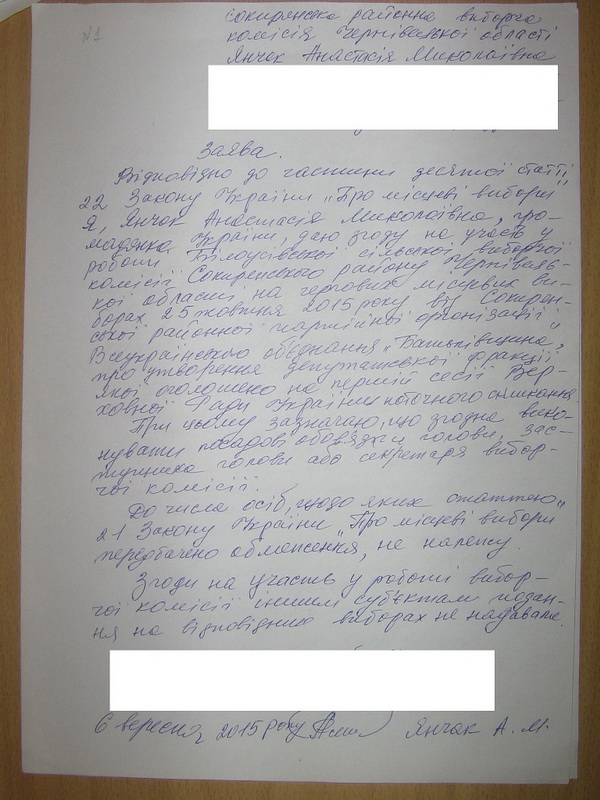 №1
Сокирянська районна виборча
комісія Чернівецької області
Янчак Анастасія Миколаївна
Заява.
Відповідно до частини десятої статті
22 Закону України „Про місцеві вибори"
я, Янчак Анастасія Миколаївна, гро-
мадянка України, даю згоду на участь у
роботі Білоусівської сільської виборчої
комісії Сокирянського району Чернівець-
кої області на чергових місцевих ви-
борах 25 жовтня 2015 року від Сокирян-
ської районної партійної організації
Всеукраїнського об'єднання „Батьківщина",
про утворення депутатської фракції
якої оголошено на першій сесії Вер-
ховної Ради України поточного скликання.
При цьому зазначаю, що згодна вико-
нувати посадові обов'язки голови, зас-
тупника голови або секретаря вибор-
чої комісії.
До числа осіб, щодо яких статтею
21 Закону України „Про місцеві вибори"
передбачено обмеження, не належу.
Згоди на участь у роботі вибор-
чої комісії іншим суб'єктам подан-
ня на відповідних виборах не надавала.
6 вересня 2015 року Янчак А. М.